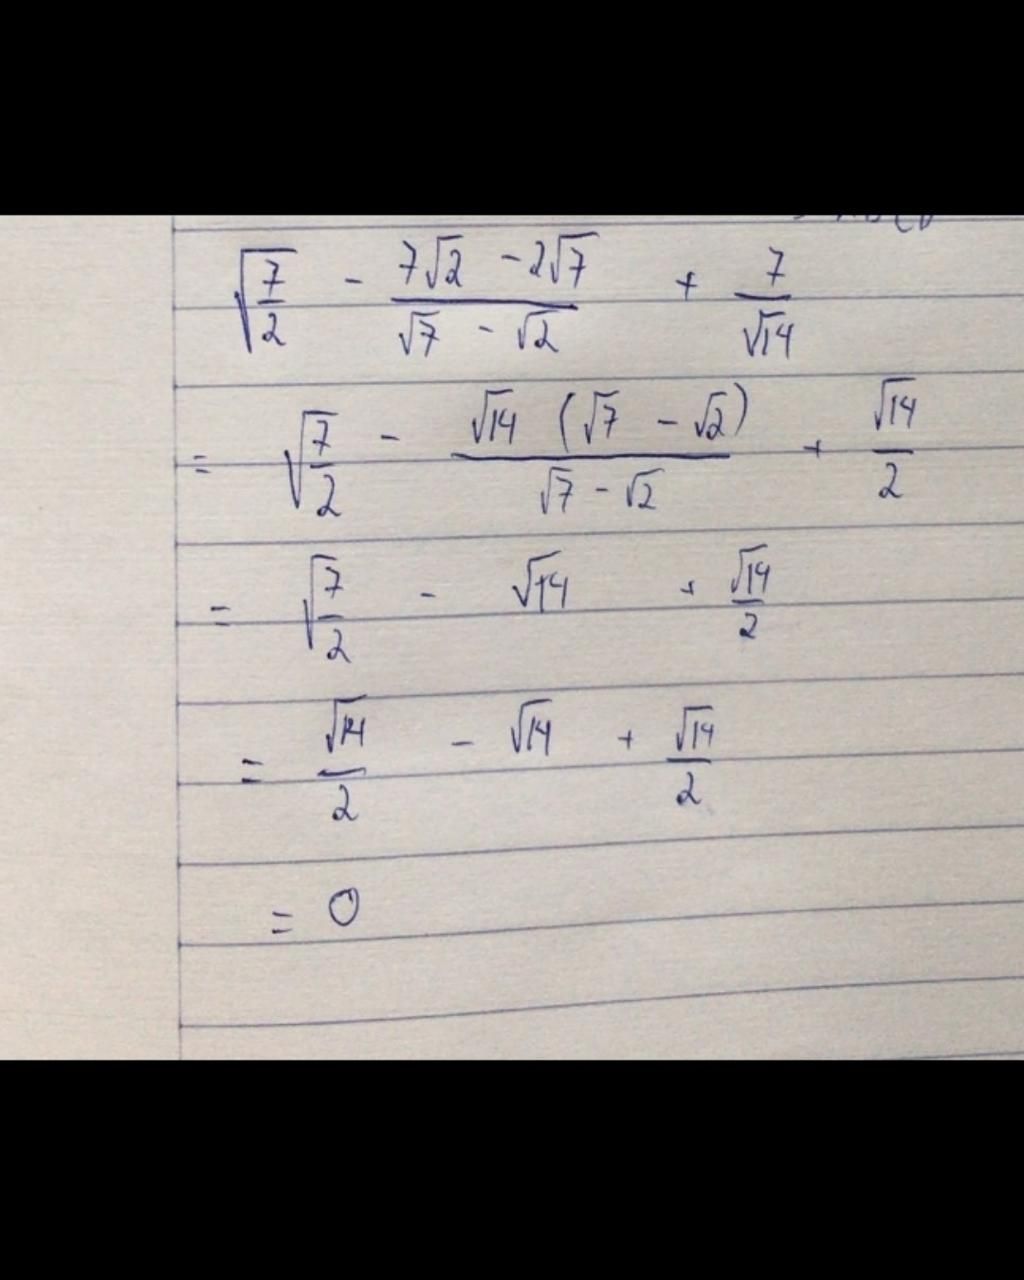 √(7/2) - (7√2 - 2√7)/(√7 - √2) + 7/√14
= √(7/2) - (√14 (√7 - √2))/(√7 - √2) + √14/2
= √(7/2) - √14 + √14/2
= √14/2 - √14 + √14/2
= 0